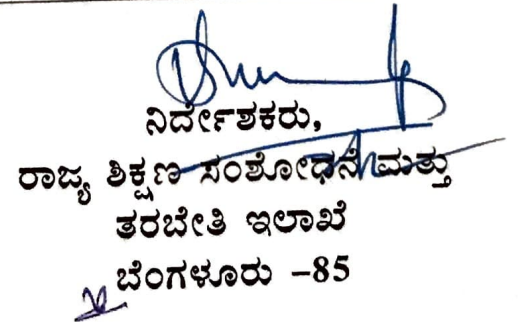 ನಿರ್ದೇಶಕರು,
ರಾಜ್ಯ ಶಿಕ್ಷಣ ಸಂಶೋಧನೆ ಮತ್ತು
ತರಬೇತಿ ಇಲಾಖೆ
ಬೆಂಗಳೂರು -85